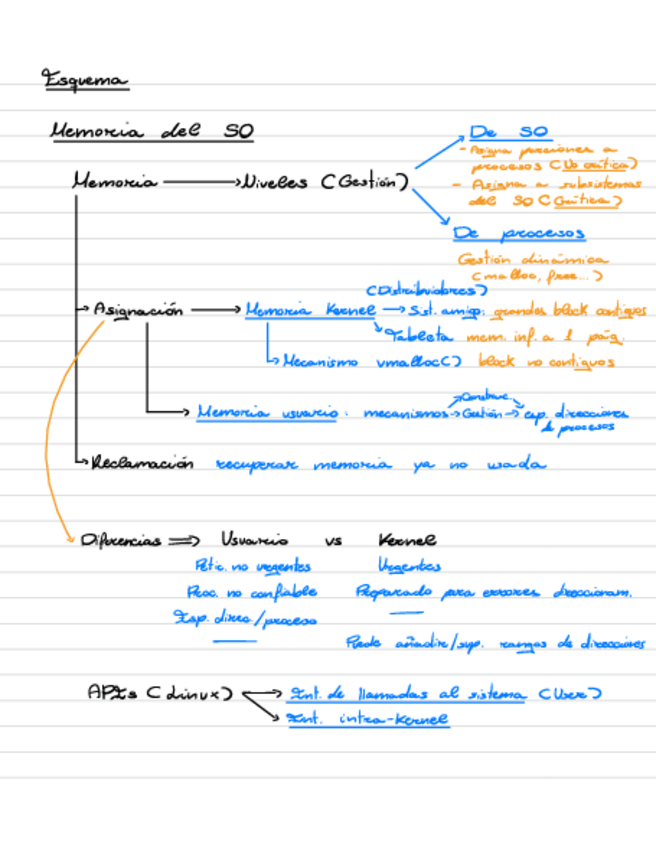 Esquema
Memoria del SO
De SO
- Asigna porciones a
procesos (No crítica)
- Asigna a subsistemas
del SO (Crítica)
Memoria → Niveles (Gestión)
De procesos
Gestión dinámica
(malloc, free...)
(Distribuidores)
Asignación → Memoria Kernel → Sist. amigo: grandes block contiguos
Tableta mem. inf. a 1 pág.
Mecanismo vmalloc() block no contiguos
Construye
Memoria usuario: mecanismos → Gestión → esp. direcciones
de procesos
Reclamación recuperar memoria ya no usada
Diferencias ⇒ Usuario vs Kernel
Petic. no urgentes Urgentes
Proc. no confiable Preparado para errores direccionam.
Esp. direcc/proceso
Puede añadir/sup. rangos de direcciones
APIs (Linux) Int. de llamadas al sistema (User)
Int. intra-Kernel